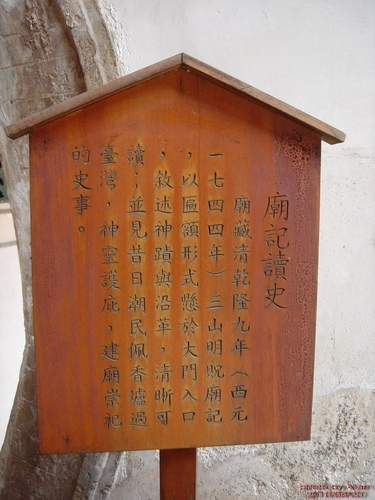 廟記讀史
廟藏清乾隆九年（西元
一七四四年）三山明貺廟記
，以匾額形式懸於大門入口
，敘述神蹟與沿革，清晰可
讀；並見昔日潮民佩香爐過
臺灣，神靈護庇，建廟崇祀
的史事。